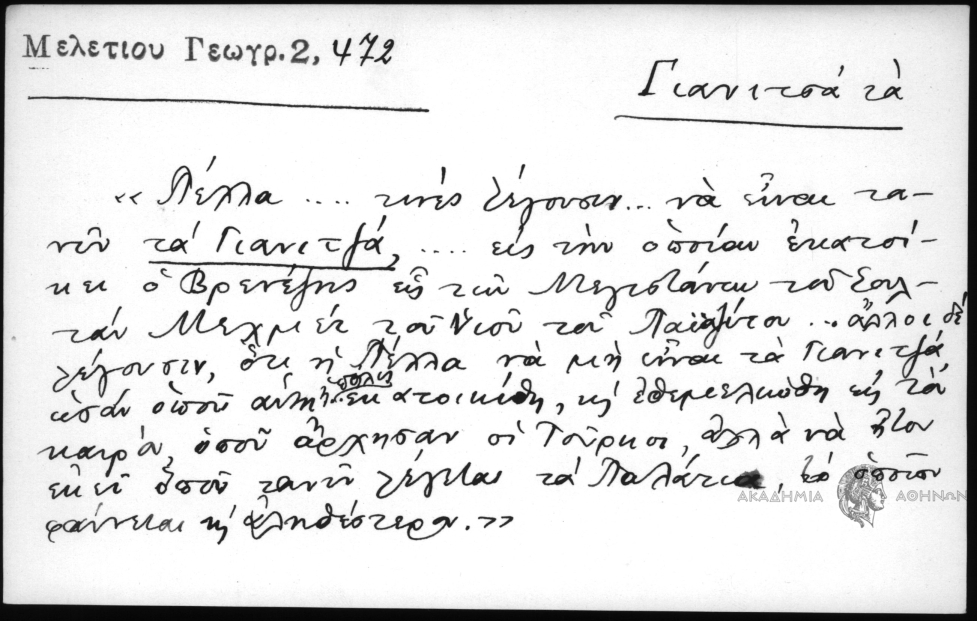 Μελετιου Γεωγρ. 2, 472
Γιανιτσά τὰ
«Πέλλα .... τινές λέγουσιν... νὰ εἶναι τα-
νῦν τά Γιανιτζά, .... εἰς τὴν ὁποίαν ἐκατοί-
κει ὁ Βρενέζης εἷς τῶν Μεγιστάνων τοῦ Σουλ-
τάν Μεχμιέτ τοῦ Υιοῦ τοῦ Παϊαζίτου ... ἄλλοι δέ
λέγουσιν, ὅτι ἡ Πέλλα νὰ μή εἶναι τὰ Γιανιτζά
ὡσάν ὁποῦ αὐτή ἡ πόλις ἐκατοικήθη, κ̀ ἐθεμελιώθη εἰς τὸν
καιρόν, ὁποῦ ἄρχησαν οἱ Τοῦρκοι, ἀλλὰ νὰ ἦτον
ἐκεῖ ὁποῦ τανῦν λέγεται τά Παλάτια, τὸ ὁποῖον
φαίνεται κ̀ ἀληθέστερον.»
ΑΚΑΔΗΜΙΑ ΑΘΗΝΩΝ